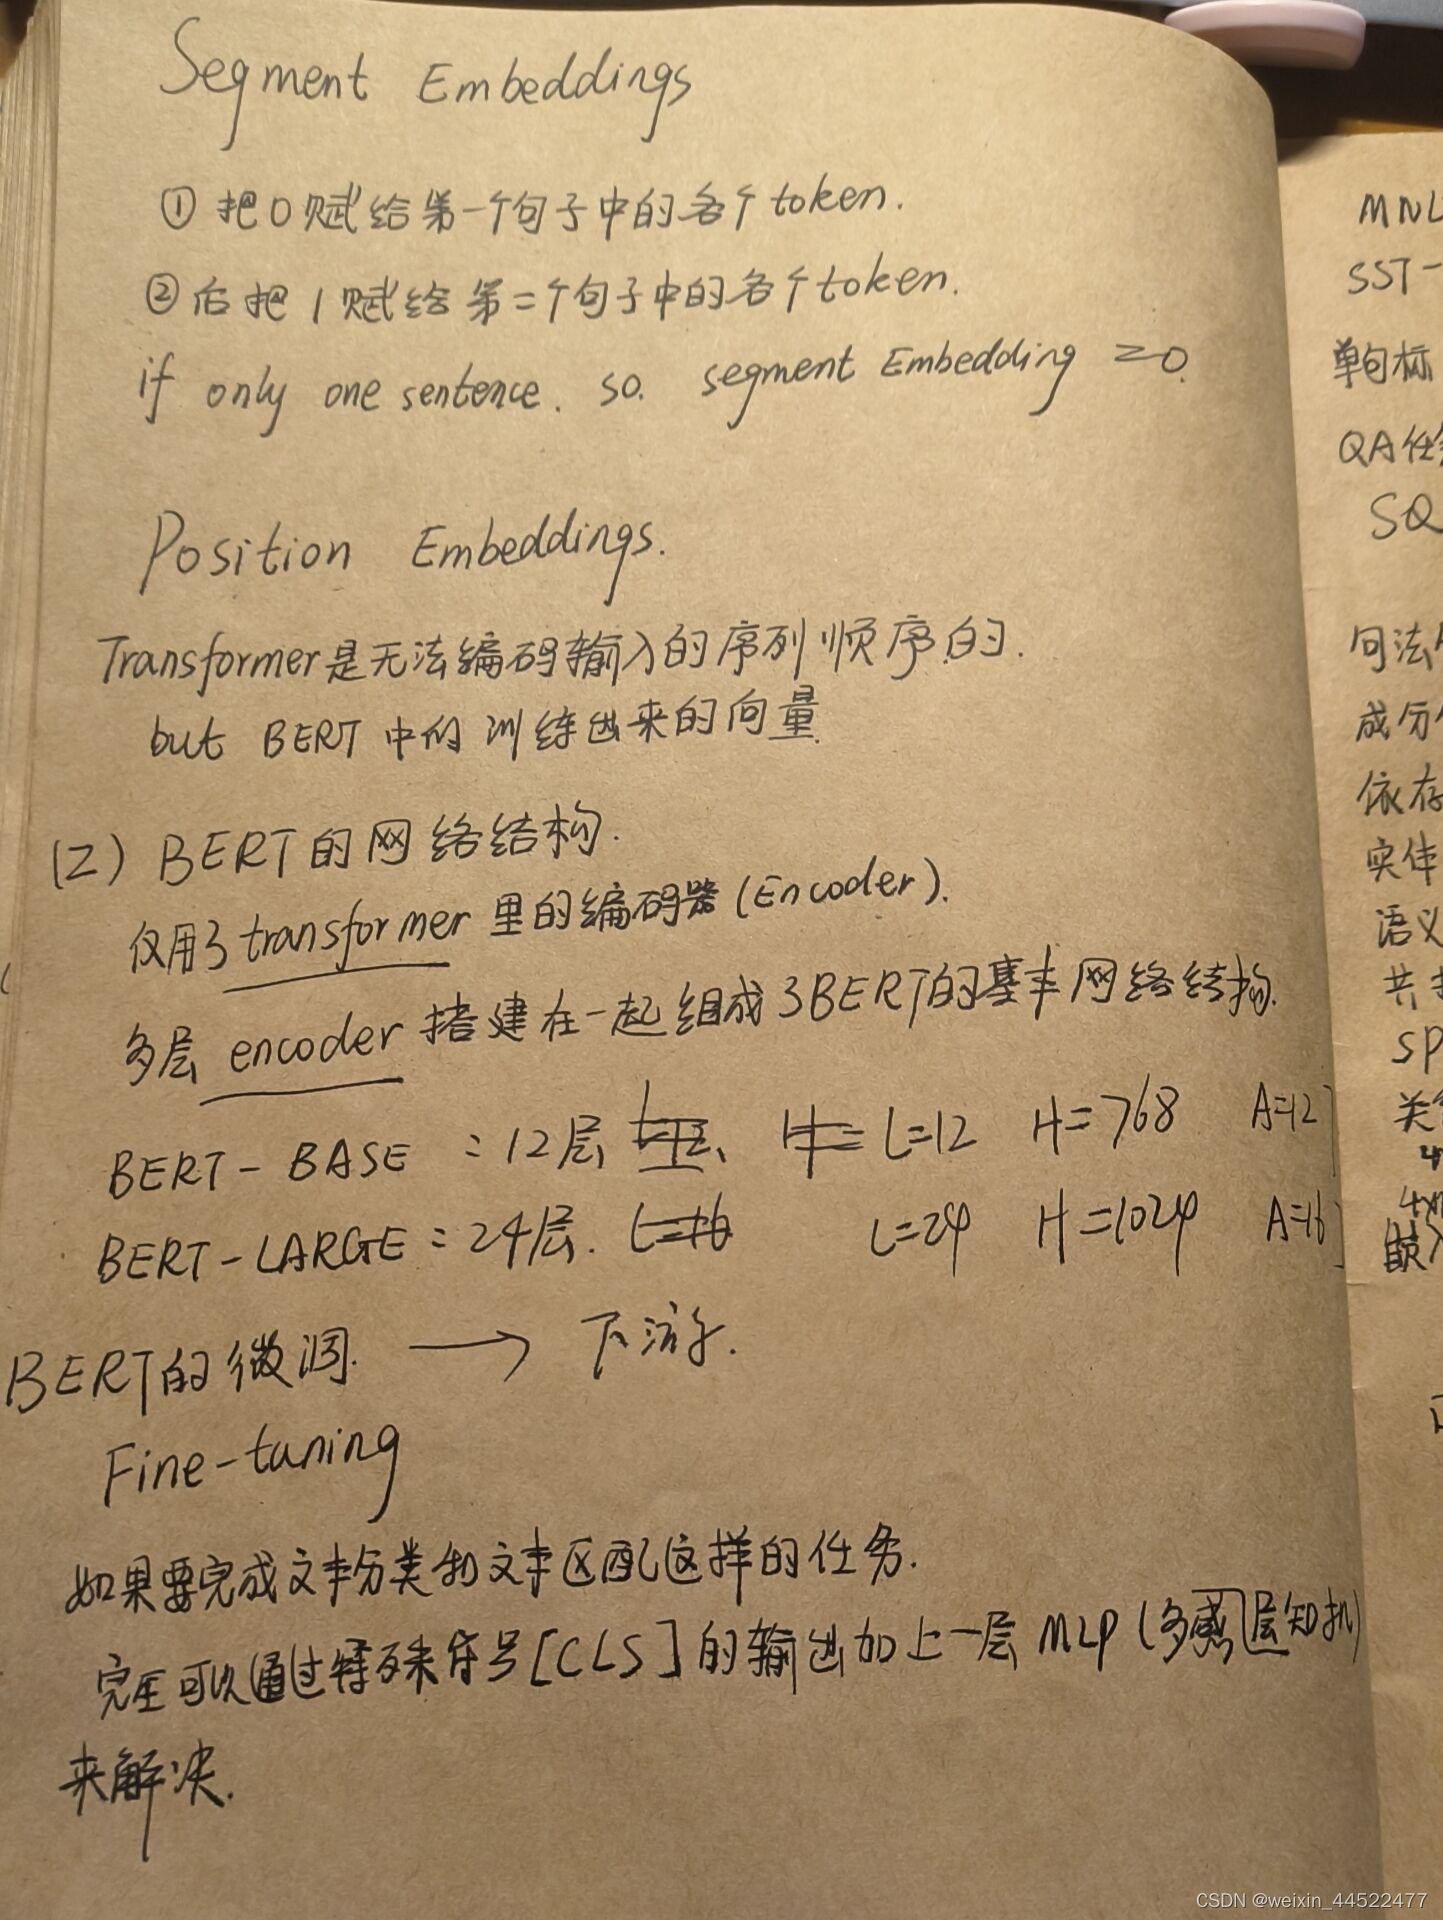 Segment Embeddings
① 把0赋给第一个句子中的各个token.
② 后把1赋给第二个句子中的各个token.
if only one sentence. so. segment Embedding =0.
Position Embeddings.
Transformer是无法编码输入的序列顺序的.
but BERT 中的训练出来的向量.
(2) BERT的网络结构.
仅用了transformer里的编码器(Encoder).
多层encoder搭建在一起组成了BERT的基本网络结构.
BERT-BASE : 12层 L=12 H=768 A=12
BERT-LARGE : 24层. L=24 H=1024 A=16
BERT的微调. → 下游.
Fine-tuning
如果要完成文本分类和文本匹配这样的任务.
完全可以通过特殊符号[CLS]的输出加上一层MLP(多感层知机)
来解决.
MNL
SST-
单句标
QA任
SQ
句法
成分
依存
实体
语义
共
SP
关
嵌入
CSDN @weixin_44522477